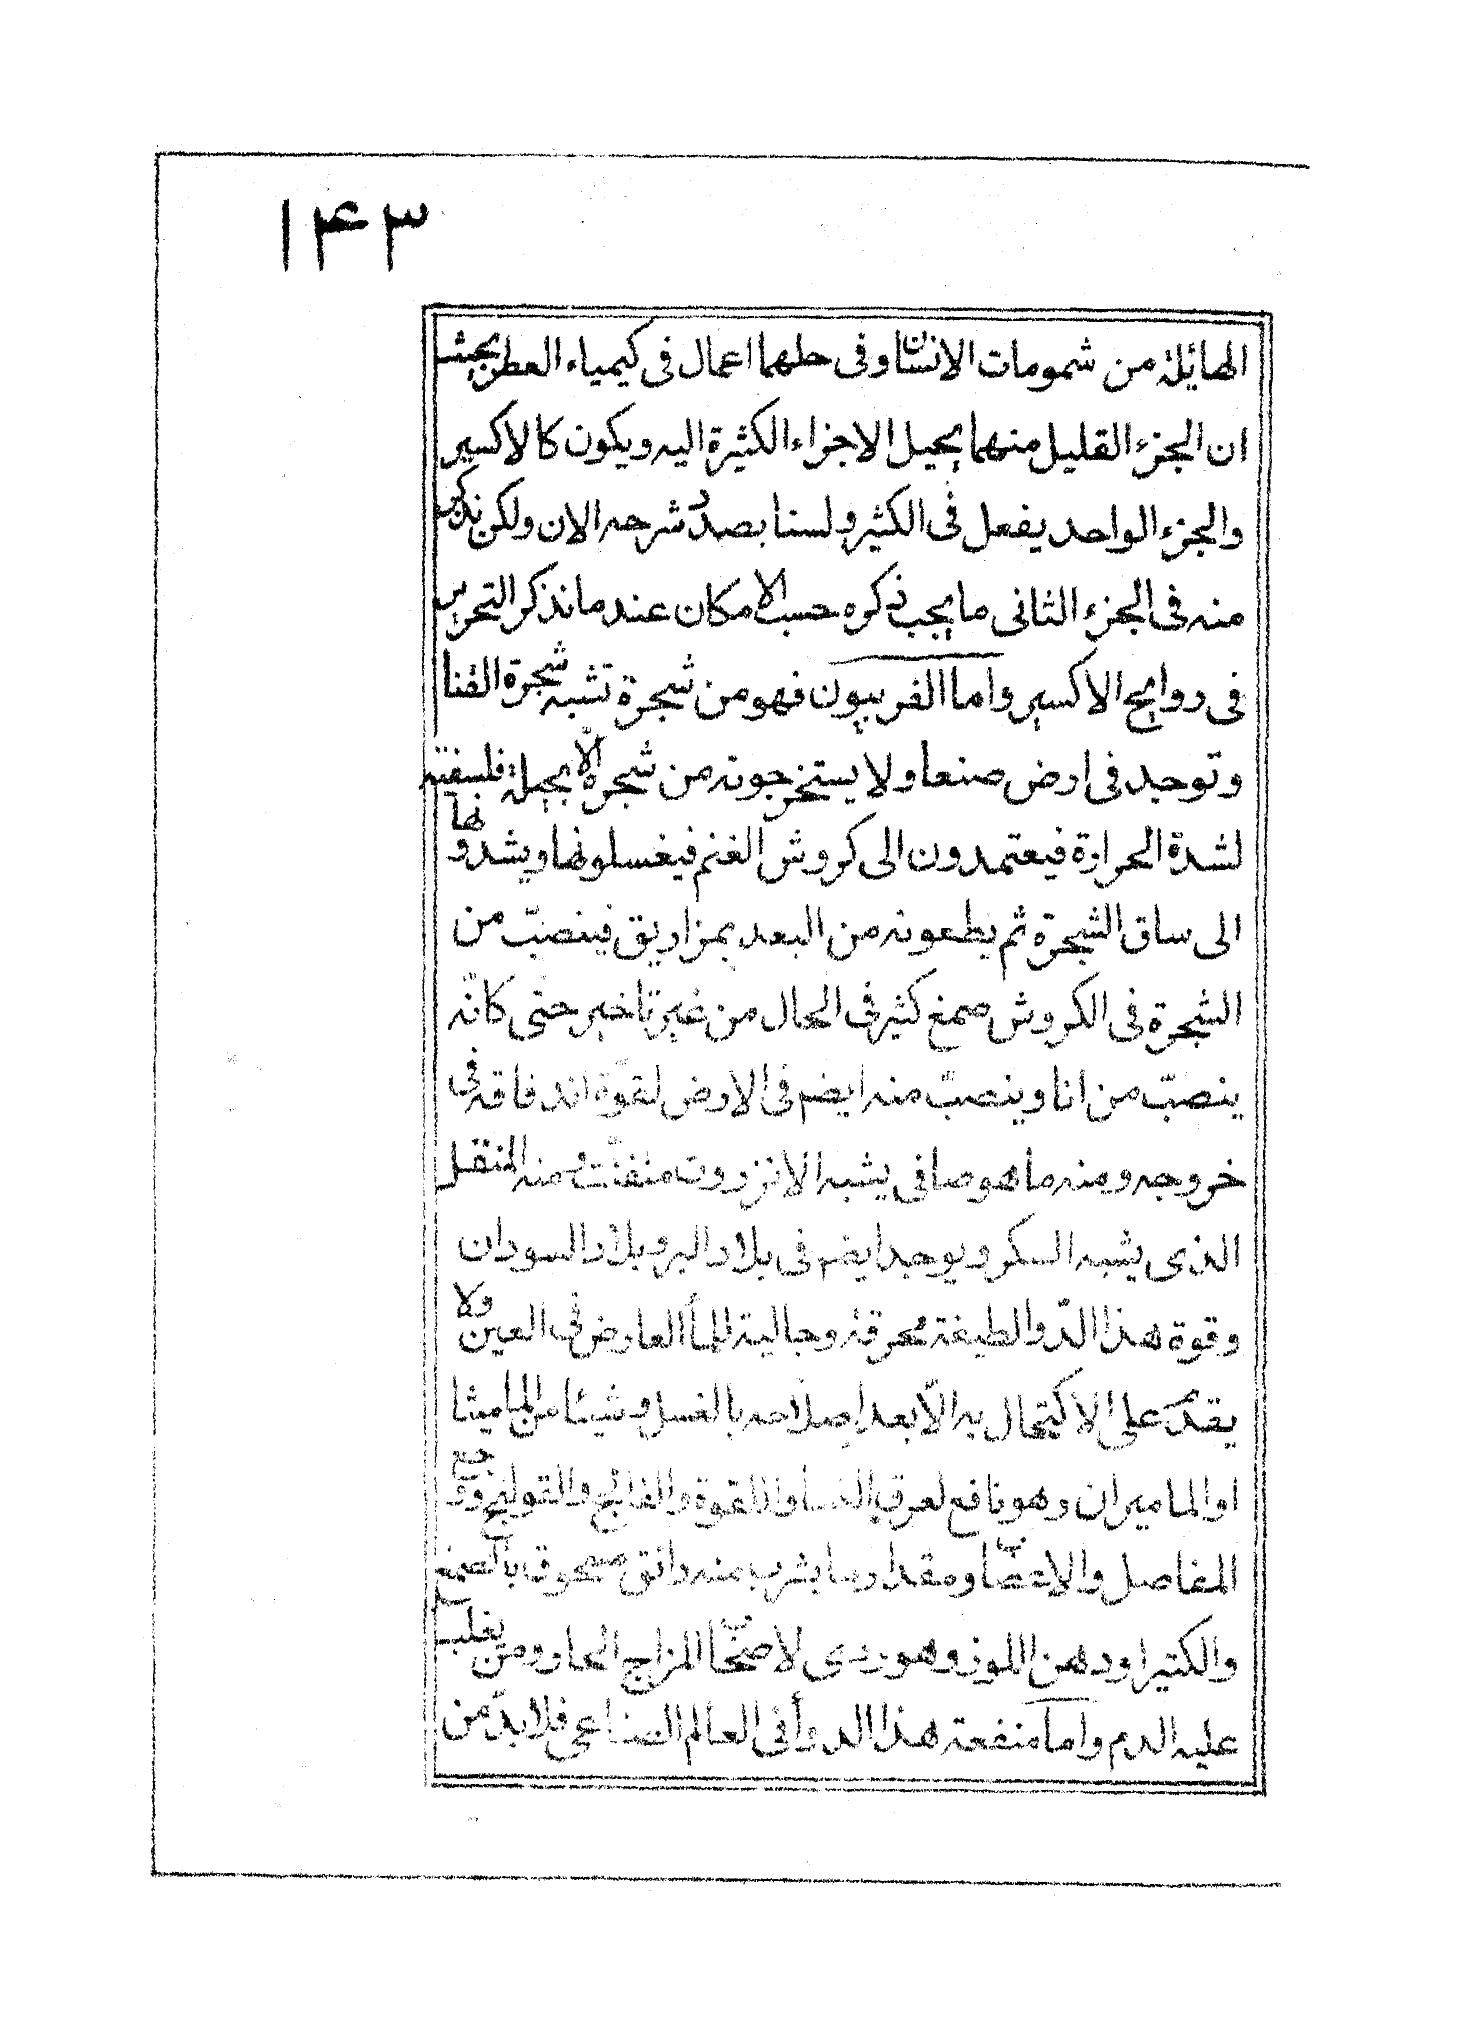 ١۴٣
الهائلة من شمومات الانسان وفى حلهما اعمال فى كيمياء العطر بحيث
ان الجزء القليل منهما يحيل الاجزاء الكثيرة اليه ويكون كالاكسير
والجزء الواحد يفعل فى الكثير ولسنا بصدد شرحه الان ولكن نذكر
منه فى الجزء الثانى ما يجب ذكره حسب الامكان عند ما نذكر التحرير
فى روايح الاكسير واما الفربيون فهو من شجرة تشبه شجرة القنا
وتوجد فى ارض صنعا ولا يستخرجونه من شجره الّا بحيلة فلسفته
لشدة الحرارة فيعتمدون الى كروش الغنم فيغسلونها ويشدونها
الى ساق الشجرة ثم يطعونه من البعد بمزاريق فينصبّ من
الشجرة فى الكروش صمغ كثير فى الحال من غير تاخير حتى كانّه
ينصبّ من انا وينصبّ منه ايضم فى الارض لقوّة اندفاقه فى
خروجه ومنه ما هو صافى يشبه الانزروت متفتت ومنه المنقل
الذى يشبه السكر ويوجد ايضم فى بلاد البر وبلاد السودان
وقوة هذا الدّوا لطيفة محرقة وجالية للمأ العارض فى العين ولا
يقدم على الاكتحال به الّا بعد اصلاحه بالغسل وشيئا من الماميثا
او الماميران وهو نافع لعرق النسا واللقوة والفالج والقولنج ووجع
المفاصل والاعصاب ومقدار ما يشرب منه دانق مسحوق بالصمغ
والكتيرا ودهن اللوز وهو ردى لاصحاب المزاج الحار ومن يغلب
عليه الدم واما منفعة هذا الدوأ فى العالم الصناعى فلا بدّ من